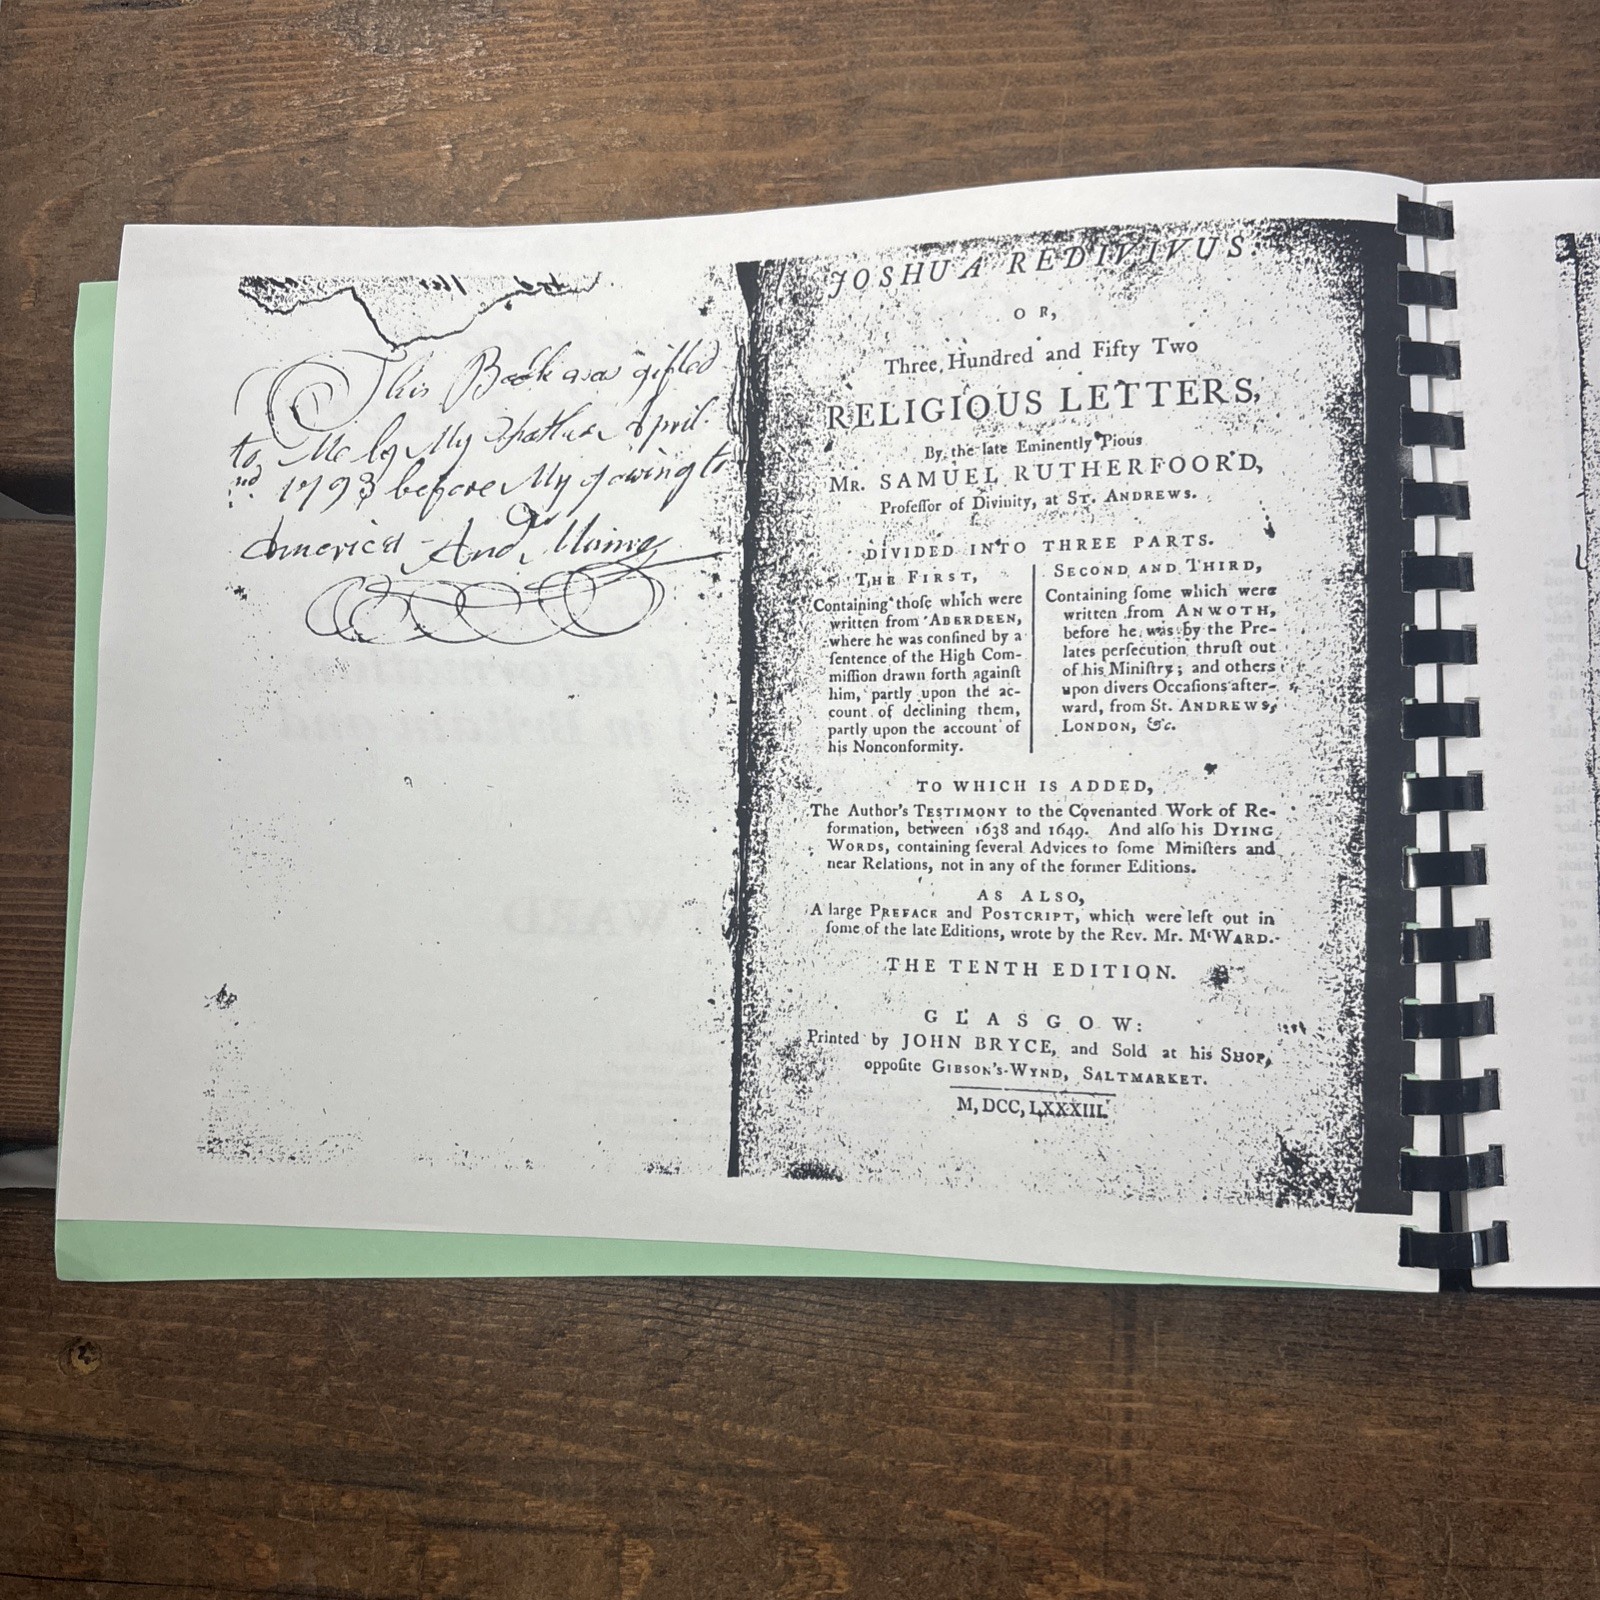 This Book was gifted
to Me by My Father April
nd 1793 before My gowing to
America - And
JOSHUA REDIVIVUS.
OR,
Three Hundred and Fifty Two
RELIGIOUS LETTERS,
By the late Eminently Pious
MR. SAMUEL RUTHERFOORD,
Profeſſor of Divinity, at ST. ANDREWS.
DIVIDED INTO THREE PARTS.
THE FIRST,
Containing thoſe which were
written from ABERDEEN,
where he was confined by a
ſentence of the High Com-
miſſion drawn forth againſt
him, partly upon the ac-
count of declining them,
partly upon the account of
his Nonconformity.
SECOND AND THIRD,
Containing ſome which were
written from ANWOTH,
before he was by the Pre-
lates perſecution thruſt out
of his Miniſtry; and others
upon divers Occaſions after-
ward, from St. ANDREWS,
LONDON, &c.
TO WHICH IS ADDED,
The Author's TESTIMONY to the Covenanted Work of Re-
formation, between 1638 and 1649. And alſo his DYING
WORDS, containing ſeveral Advices to ſome Miniſters and
near Relations, not in any of the former Editions.
AS ALSO,
A large PREFACE and POSTCRIPT, which were left out in
ſome of the late Editions, wrote by the Rev. Mr. MᶜWARD.
THE TENTH EDITION.
GLASGOW:
Printed by JOHN BRYCE, and Sold at his SHOP,
oppoſite GIBSON'S-WYND, SALTMARKET.
M,DCC,LXXXIII.